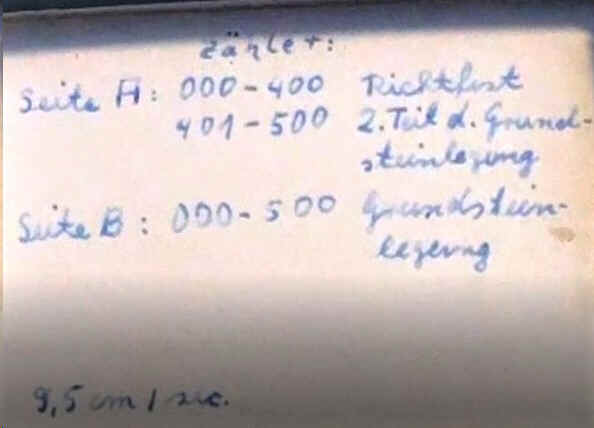 Zähler:
Seite A: 000-400 Richtfest
401-500 2. Teil d. Grund-
steinlegung
Seite B: 000-500 Grundstein-
legung
9,5 cm/sec.